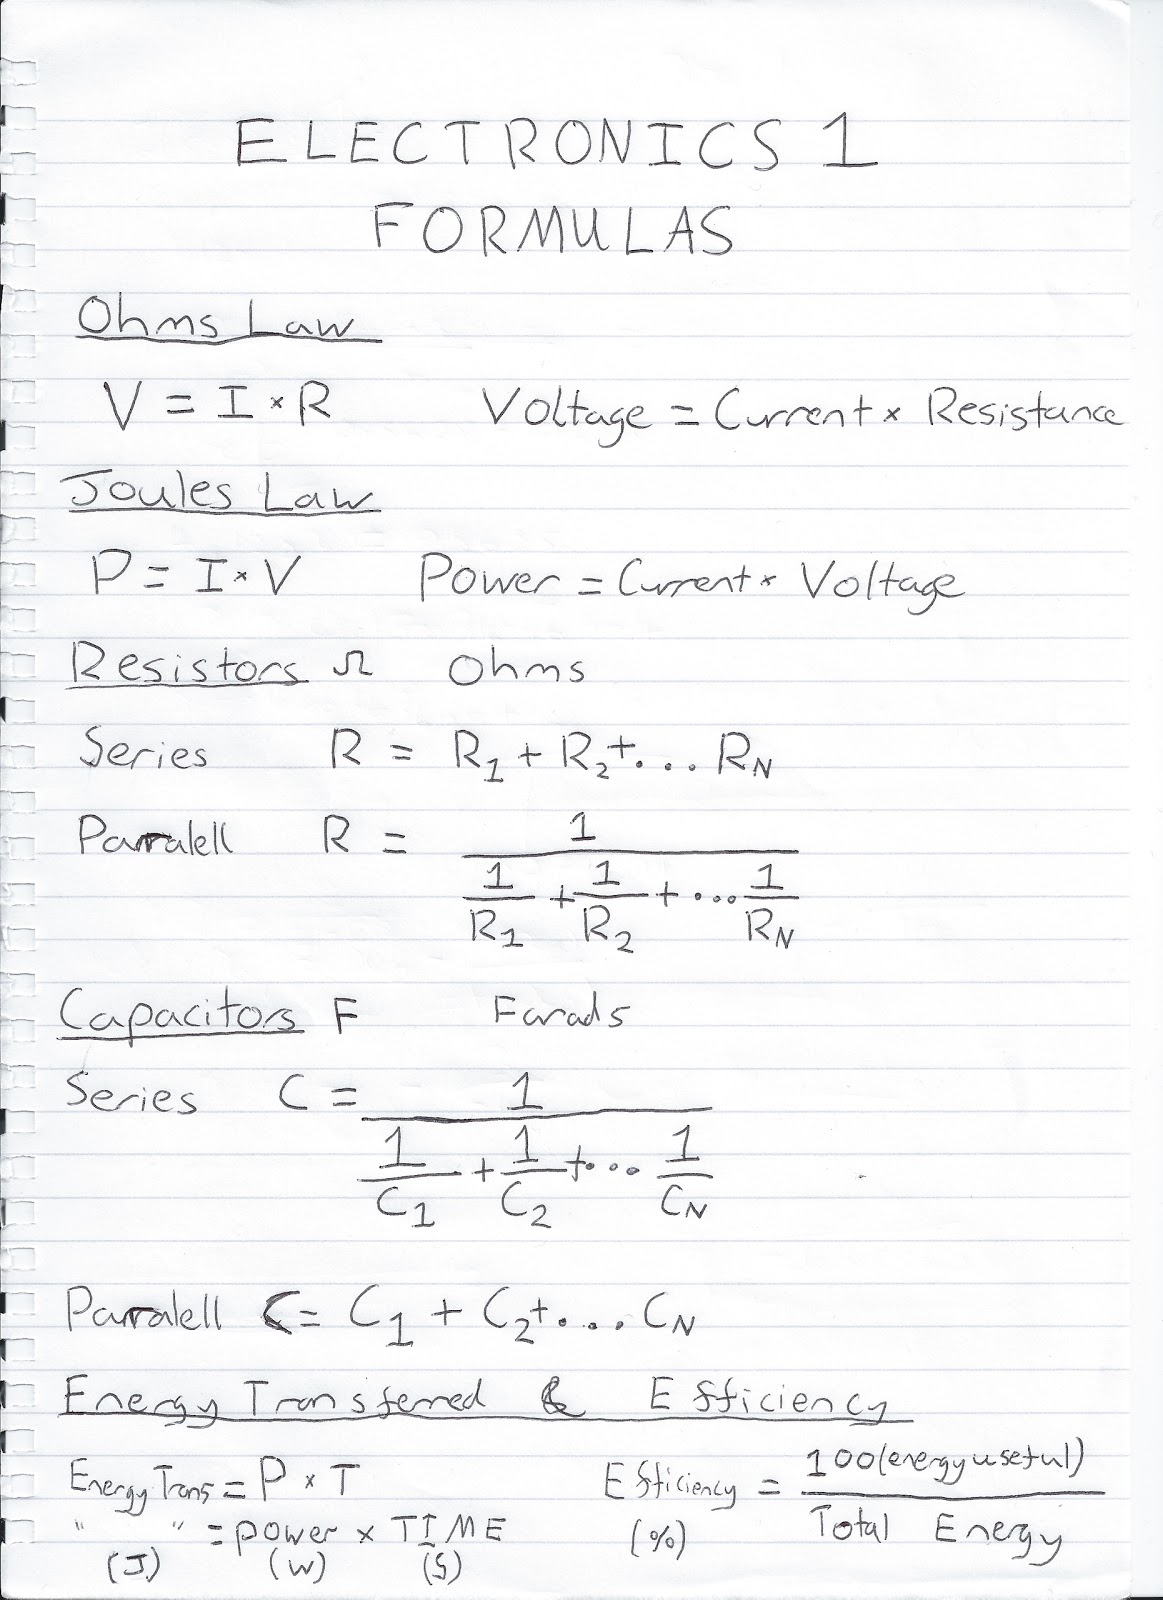 ELECTRONICS 1
FORMULAS
Ohms Law
V = I × R Voltage = Current × Resistance
Joules Law
P = I × V Power = Current × Voltage
Resistors Ω Ohms
Series R = R₁ + R₂ + ... R_N
Parralell R = 1
1 + 1 + ... 1
R₁ R₂ R_N
Capacitors F Farads
Series C = 1
1 + 1 + ... 1
C₁ C₂ C_N
Parralell C = C₁ + C₂ + ... C_N
Energy Transferred & Efficiency
Energy Trans = P × T Efficiency = 100(energy useful)
" " = power × TIME (%) Total Energy
(J) (W) (S)